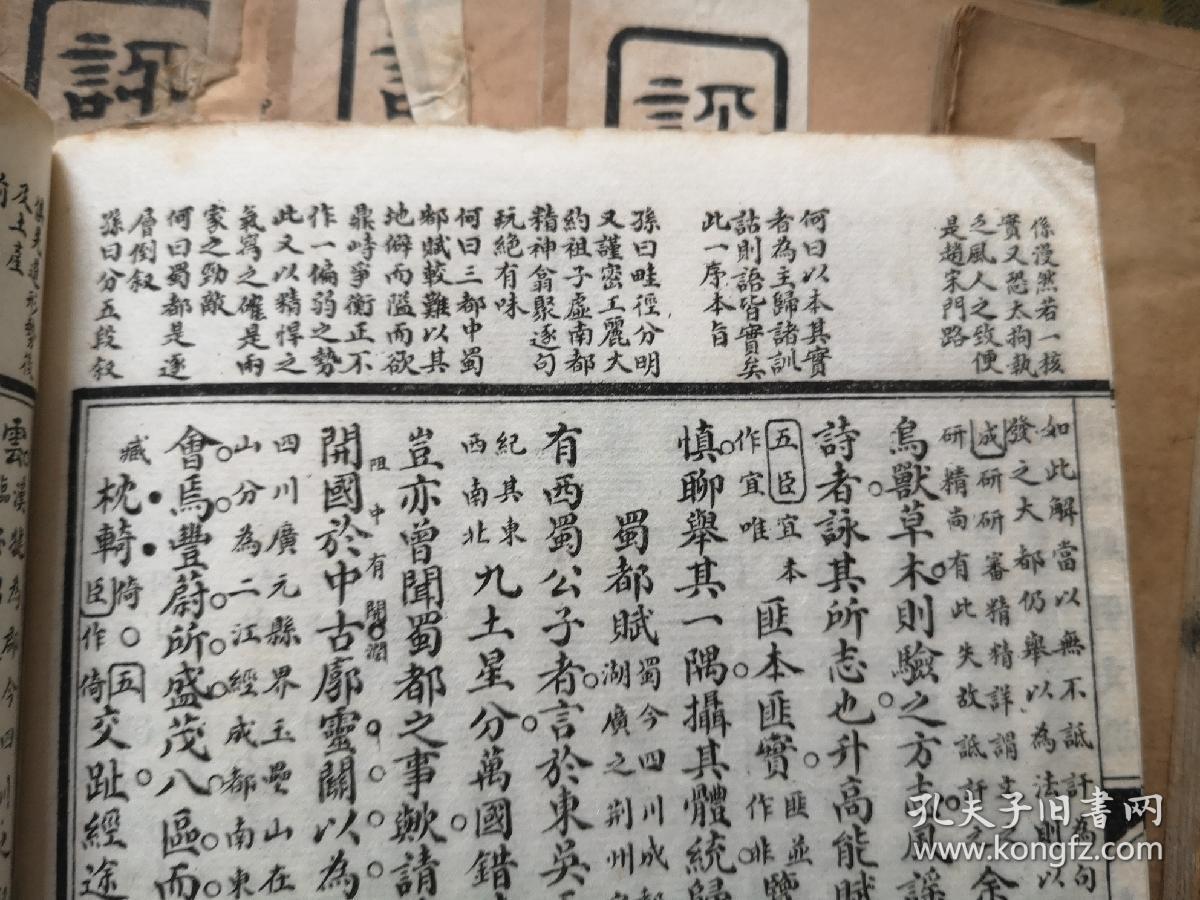 評
評
評
係漫然若一核
實又恐太拘執
之風人之致便
是趙宋門路
何曰以本其實
者為主歸諸訓
詁則語皆實矣
此一序本旨
孫曰畦徑分明
又謹密工麗大
約祖子虛南都
精神翕聚逐句
玩絕有味
何曰三都中蜀
都賦較難以其
地僻而隘而欲
鼎峙爭衡正不
作一偏弱之勢
此文以精悍之
氣寫之確是兩
家之勁敵
何曰蜀都是逐
層倒敘
孫曰分五段敘
如此解當以無不詆訐為句
發之大都仍舉以為法則以
成研研審精精詳謂
研精尚有此失故詆訐
鳥獸草木則驗之方志風謠
詩者詠其所志也升高能賦
五臣宜本
作宜唯
匪本匪實
匪並
作非
覽
慎聊舉其一隅攝其體統歸
蜀都賦
蜀今四川成都
湖廣之荆州
有西蜀公子者言於東吳
紀其東
西南北
九土星分萬國錯
豈亦曾聞蜀都之事歟請
阻中有
開國於中古廓靈關以為
四川廣元縣界玉壘山在
山分為二江經成都南東
會焉豐蔚所盛茂八區而
臧
枕輢
倚五
臣作倚
交趾經途
孔夫子旧书网
www.kongfz.com